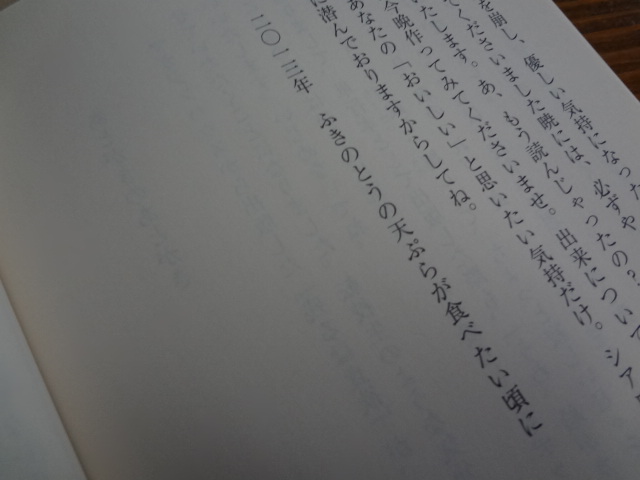 を崩し、優しい気持になった
てくださいました暁には、必ずや
いたします。あ、もう読んじゃったの?
今晩作ってみてくださいませ。出来について
あなたの「おいしい」と思いたい気持だけ。
に潜んでおりますからしてね。
二〇一三年 ふきのとうの天ぷらが食べたい頃に